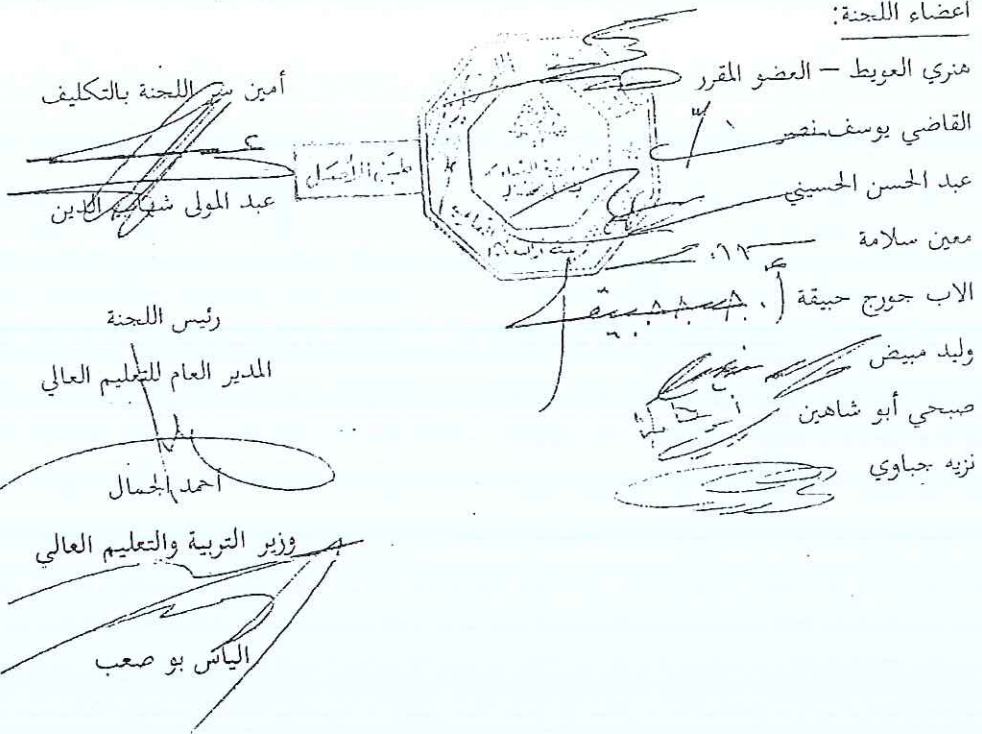 اعضاء اللجنة:
هنري العويط – العضو المقرر
القاضي يوسف نصر
عبد الحسن الحسيني
معين سلامة
الاب جورج حبيقة
وليد مبيض
صبحي أبو شاهين
نزيه جباوي
أمين سر اللجنة بالتكليف
عبد المولى شهاب الدين
طبق الأصل
رئيس اللجنة
المدير العام للتعليم العالي
احمد الجمال
وزير التربية والتعليم العالي
الياس بو صعب